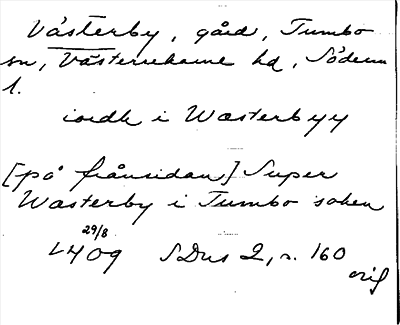 Västerby, gård, Tumbo
sn, Västerrekarne hd, Söderm
l.
iordh i Wæsterbyy
[på frånsidan] Super
Wasterby i Tumbo soken
29/8
1409 SDns 2, s. 160
orig